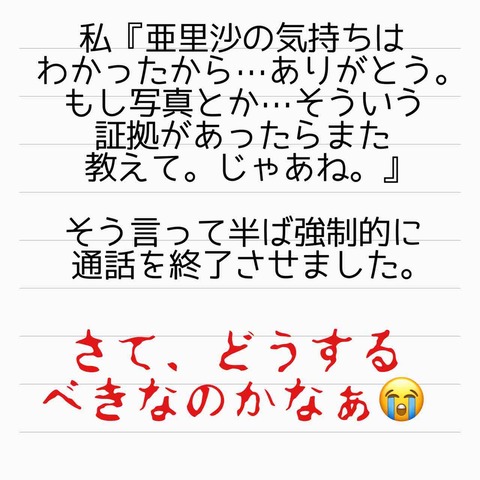 私『亜里沙の気持ちは
わかったから…ありがとう。
もし写真とか…そういう
証拠があったらまた
教えて。じゃあね。』
そう言って半ば強制的に
通話を終了させました。
さて、どうする
べきなのかなぁ😭